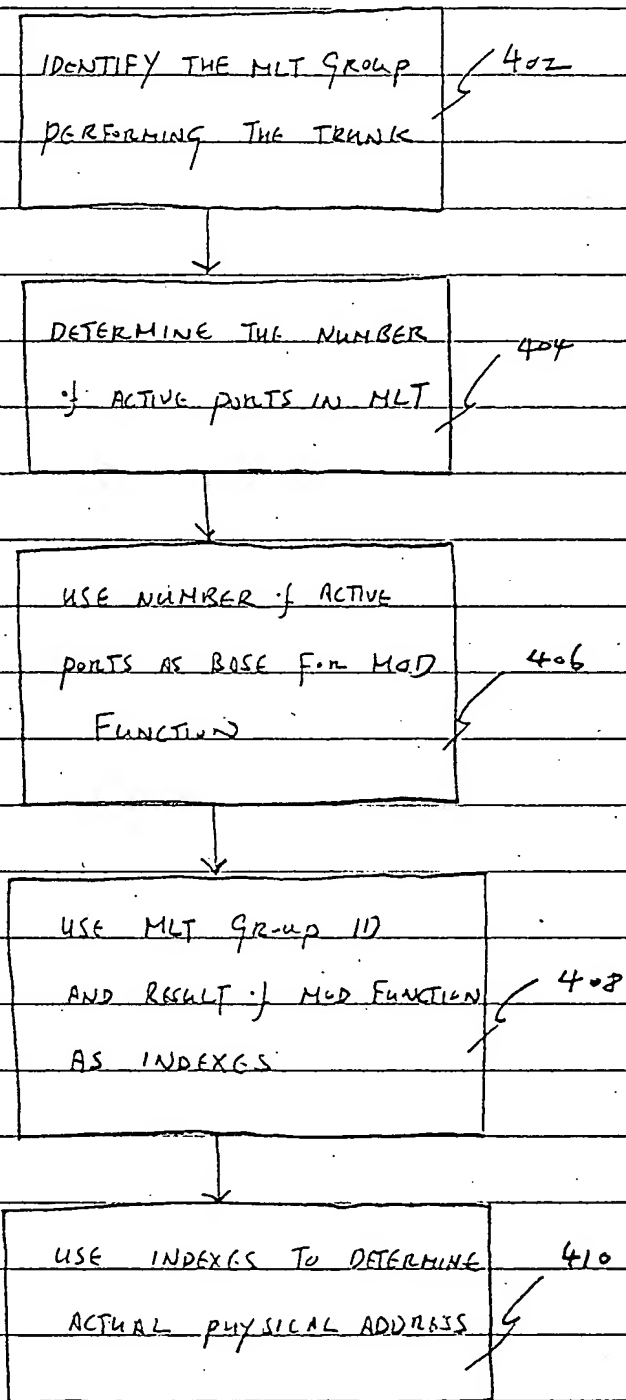 IDENTIFY THE MLT GROUP
402
PERFORMING THE TRUNK
DETERMINE THE NUMBER
404
of ACTIVE PORTS IN MLT
USE NUMBER of ACTIVE
PORTS AS BASE FOR MOD
406
FUNCTION
USE MLT GROUP ID
AND RESULT of MOD FUNCTION
408
AS INDEXES
USE INDEXES TO DETERMINE
410
ACTUAL PHYSICAL ADDRESS